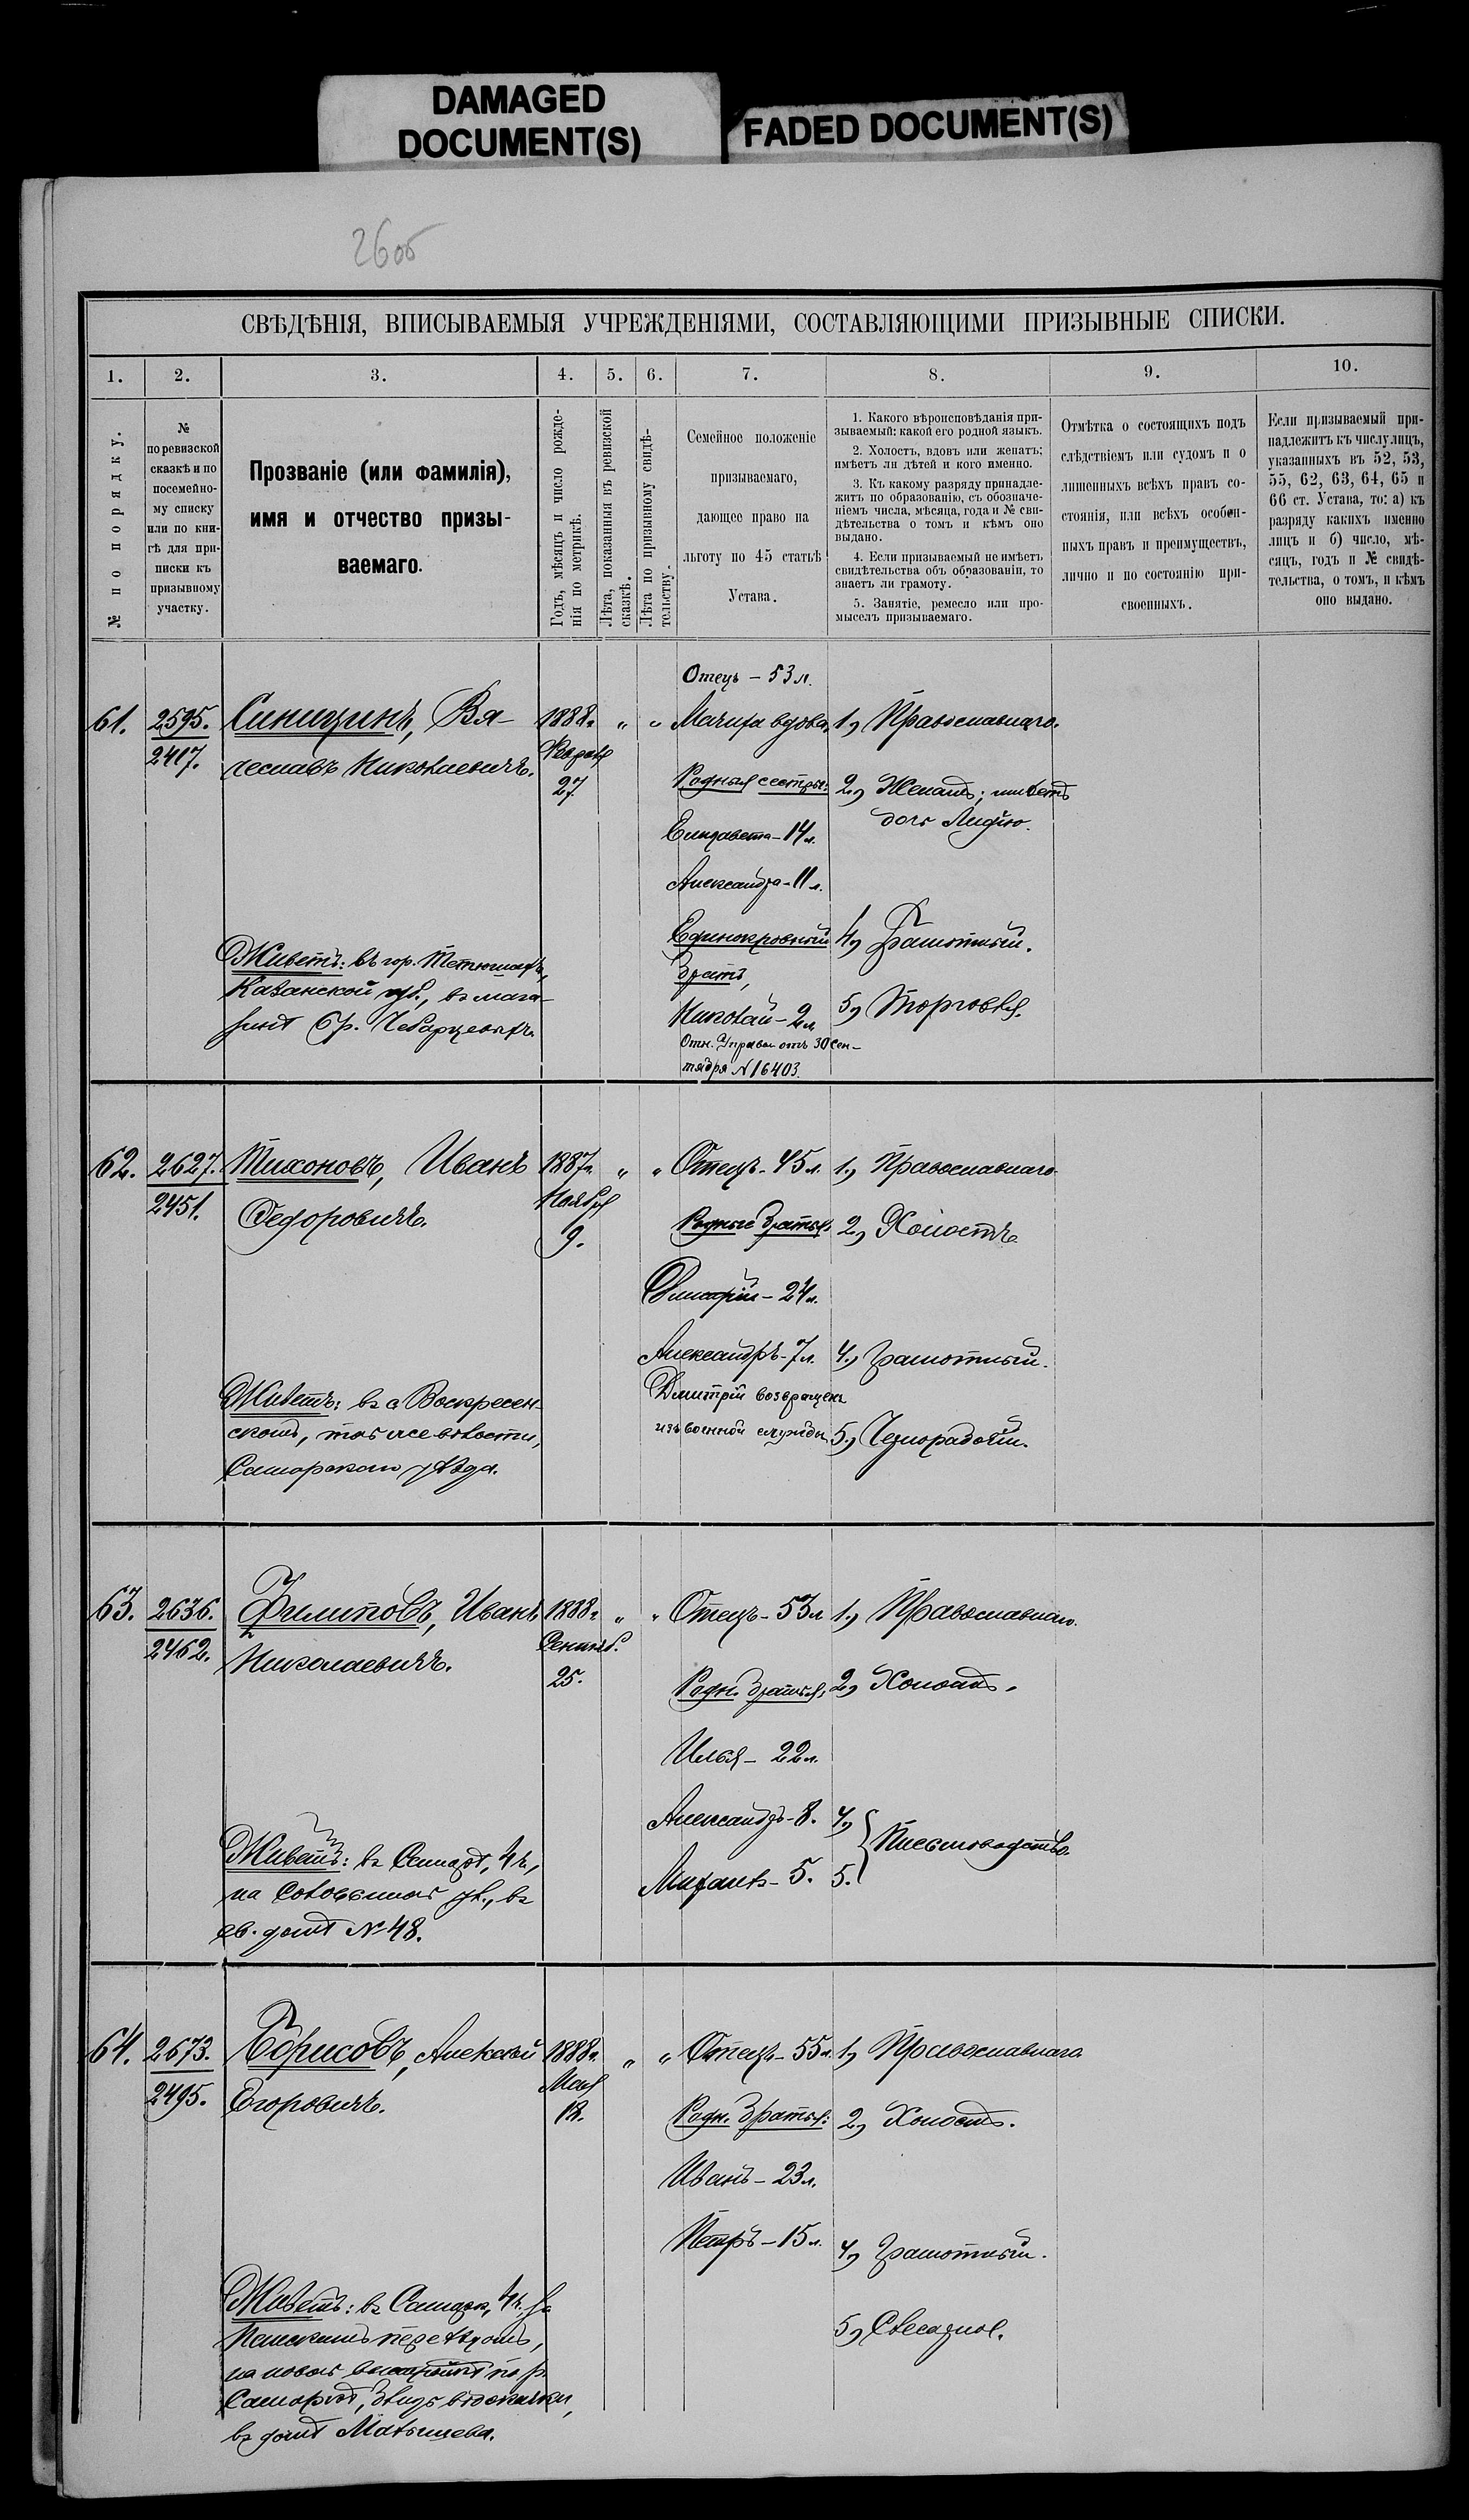 DAMAGED
DOCUMENT(S)
FADED DOCUMENT(S)
26об
СВѢДѢНІЯ, ВПИСЫВАЕМЫЯ УЧРЕЖДЕНІЯМИ, СОСТАВЛЯЮЩИМИ ПРИЗЫВНЫЕ СПИСКИ.
1. 2. 3. 4. 5. 6. 7. 8. 9. 10.
№ по порядку.
№
по ревизской
сказкѣ и по
посемейно-
му списку
или по кни-
гѣ для при-
писки къ
призывному
участку.
Прозваніе (или фамилія),
имя и отчество призы-
ваемаго.
Годъ, мѣсяцъ и число рожде-
нія по метрикѣ.
Лѣта, показанныя въ ревизской
сказкѣ.
Лѣта по призывному свидѣ-
тельству.
Семейное положеніе
призываемаго,
дающее право на
льготу по 45 статьѣ
Устава.
1. Какого вѣроисповѣданія при-
зываемый; какой его родной языкъ.
2. Холостъ, вдовъ или женатъ;
имѣетъ ли дѣтей и кого именно.
3. Къ какому разряду принадле-
житъ по образованію, съ обозначе-
ніемъ числа, мѣсяца, года и № сви-
дѣтельства о томъ и кѣмъ оно
выдано.
4. Если призываемый не имѣетъ
свидѣтельства объ образованіи, то
знаетъ ли грамоту.
5. Занятіе, ремесло или про-
мыселъ призываемаго.
Отмѣтка о состоящихъ подъ
слѣдствіемъ или судомъ и о
лишенныхъ всѣхъ правъ со-
стоянія, или всѣхъ особен-
ныхъ правъ и преимуществъ,
лично и по состоянію при-
своенныхъ.
Если призываемый при-
надлежитъ къ числу лицъ,
указанныхъ въ 52, 53,
55, 62, 63, 64, 65 и
66 ст. Устава, то: а) къ
разряду какихъ именно
лицъ и б) число, мѣ-
сяцъ, годъ и № свидѣ-
тельства, о томъ, и кѣмъ
оно выдано.
61.
2595.
2417.
Синицинъ, Вя-
чеславъ Николаевичъ.
Живетъ: въ гор. Тетюшахъ,
Казанской губ., въ мага-
зинѣ бр. Чебарцевыхъ.
1888 г.
27.
" "
Отецъ – 53 л.
Мачиха вдова,
Родныя сестры:
Елизавета – 14 л.
Александра – 11 л.
Единокровный
братъ,
Николай – 2 л.
Отн. Управы отъ 30 Сен-
тября № 16403.
1, Православнаго.
2, Женатъ; имѣетъ
дочь Лидію.
4, Грамотный.
5, Торговля.
62.
2627.
2451.
Тихоновъ, Иванъ
Федоровичъ.
Живетъ: въ с. Воскресен-
скомъ, той же волости,
Самарскаго уѣзда.
1887 г.
Ноября
9.
" "
Отецъ – 45 л.
Родные братья:
Дмитрій – 24 л.
Александръ – 7 л.
Дмитрій возвращенъ
изъ военной службы
1, Православнаго
2, Холостъ
4, Грамотный.
5, Чернорабочій.
63.
2636.
2462.
Филиповъ, Иванъ
Николаевичъ.
Живетъ: въ Самарѣ, 4 ч.,
на Соловьиной ул., въ
св. домѣ № 48.
1888 г.
Сентяб.
25.
" "
Отецъ – 53 л.
Родн. братья:
Илья – 22 л.
Александръ – 8.
Михаилъ – 5.
1, Православнаго.
2, Холостъ.
4,
5.
Письмоводство.
64.
2673.
2495.
Борисовъ, Алексѣй
Егоровичъ.
Живетъ: въ Самарѣ, 4 ч. за
въ домѣ Матынцева.
1888 г.
Мая
18.
" "
Отецъ – 55 л.
Родн. братья:
Иванъ – 23 л.
Петръ – 15 л.
1, Православнаго
2, Холостъ.
4, Грамотный.
5, Слесарное.